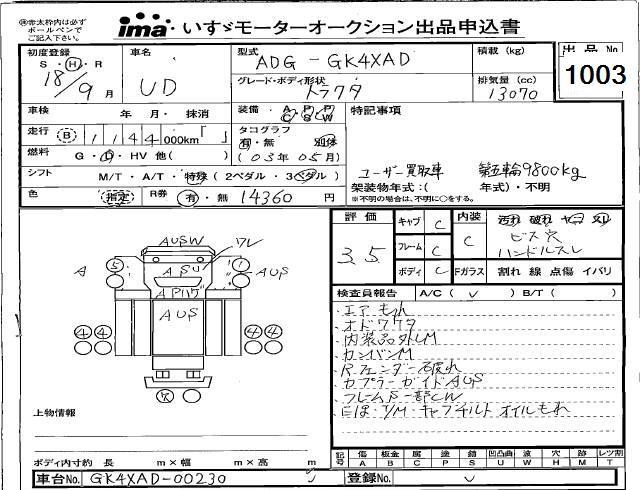 ㊟赤太枠内は必ず
ボールペンで
ご記入下さい。
ima いすゞモーターオークション出品申込書
出品 No
1003
初度登録
S・H・R
18/9月
車名
UD
型式
ADG-GK4XAD
積載 (kg)
グレード・ボディ形状
トラクタ
排気量 (cc)
13070
車検 年 月・抹消
装備 A/C P/S P/W
特記事項
走行 B 1144 000km「 」
タコグラフ
有・無 別体
(03年05月)
燃料 G・L・HV 他( )
ユーザー買取車 第五輪9800kg
シフト M/T・A/T・特殊(2ペダル・3ペダル)
架装物年式:( 年式)・不明
※不明の場合は、不明に○をする。
色 (指定) R券 有・無 14360 円
評価
3.5
キャブ C
フレーム C
ボディ C
内装 C
汚れ 破れ ヤコゲ スレ
ビス穴
ハンドルスレ
Fガラス 割れ 線 点傷 イバリ
検査員報告 A/C( ✓ ) B/T( )
・エアもれ
・オドワケタ
・内装品外しM
・カンバンM
・Rフェンダー破れ
・カプラーガイドAUS
・フレームP一部CW
・Eほ・T/M・キャブチルト オイルもれ
AUSW
ワレ
A
5
APU
1
AUS
AUS
4 4
4 4
上物情報
ボディ内寸約 長 m×幅 m×高 m
記号 傷 A 板金 B 腐 C 塗 P 錆 S 凹凸曲 U 波 W 穴 H 無 M レツ割 T
車台No. GK4XAD-00230
登録No.